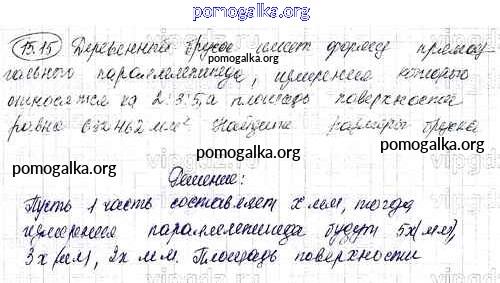 pomogalka.org
15.15 Деревянный брусок имеет форму прямоу-
гольного параллелепипеда, измерения которого
относятся как 2:3:5, а площадь поверхности
равна мм² Найдите размеры бруска
pomogalka.org
pomogalka.org pomogalka.org
Решение:
Пусть 1 часть составляет x мм, тогда
измерения параллелепипеда будут 5x (мм),
3x (мм), 2x мм. Площадь поверхности
pomogalka.org